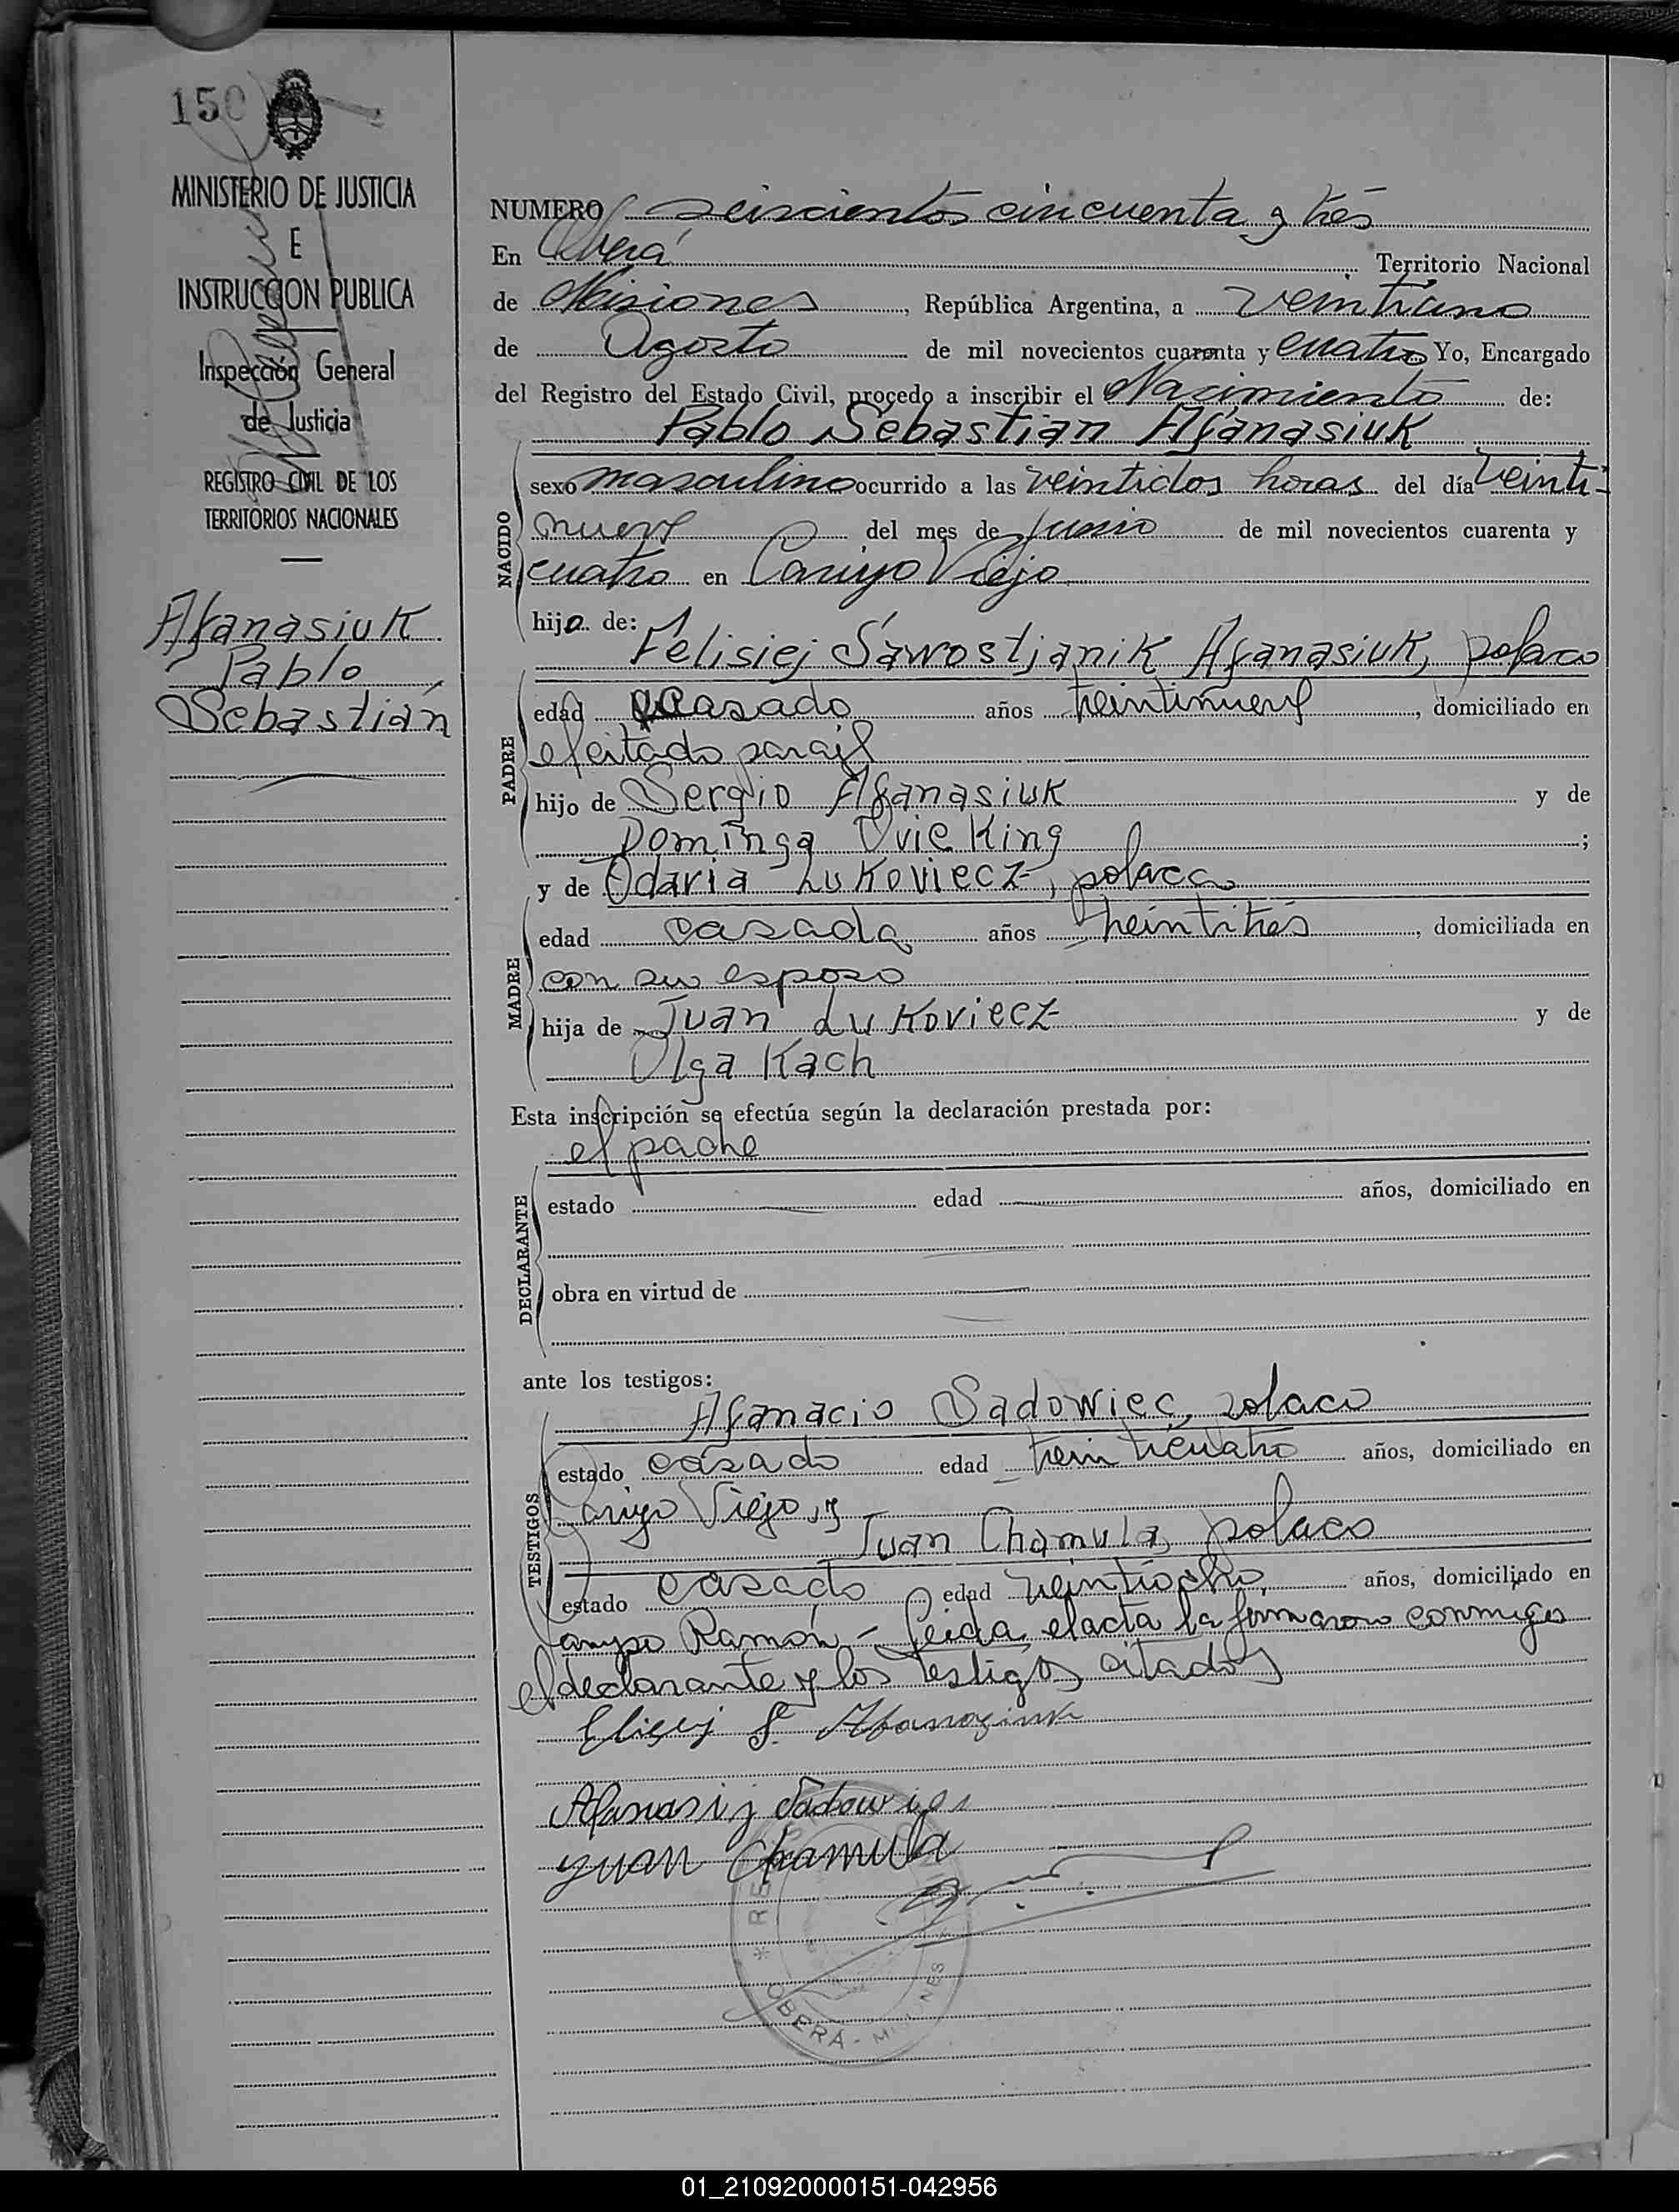 150
MINISTERIO DE JUSTICIA
E
INSTRUCCION PUBLICA
Inspección General
de Justicia
REGISTRO CIVIL DE LOS
TERRITORIOS NACIONALES
Afanasiuk
Pablo
Sebastián
NUMERO seiscientos cincuenta y tres
En Oberá Territorio Nacional
de Misiones, República Argentina, a veintiuno
de Agosto de mil novecientos cuarenta y cuatro Yo, Encargado
del Registro del Estado Civil, procedo a inscribir el Nacimiento de:
Pablo Sebastian Afanasiuk
NACIDO
sexo masculino ocurrido a las veintidos horas del día veinti-
nueve del mes de junio de mil novecientos cuarenta y
cuatro en Campo Viejo
hijo de:
Felisiej Sawostjanik Afanasiuk, polaco
PADRE
edad casado años treintinueve, domiciliado en
el citado paraje
hijo de Sergio Afanasiuk y de
Dominga Ovieking;
y de Odaria Lukoviecz, polaca
MADRE
edad casada años treintitrés, domiciliada en
con su esposo
hija de Juan Lukoviecz y de
Olga Kach
Esta inscripción se efectúa según la declaración prestada por:
el padre
DECLARANTE
estado edad años, domiciliado en
obra en virtud de
ante los testigos:
Afanacio Sadowiec, polaco
TESTIGOS
estado casado edad treinticuatro años, domiciliado en
Campo Viejo, y
Juan Chamula, polaco
estado casado edad veintiocho, años, domiciliado en
Campo Ramón - Leida el acta la firmaron conmigo
el declarante y los testigos citados
Elisej S. Afanaziuk
Afanasij Sadowiec
Juan Chamula
OBERÁ - MISIONES
01_210920000151-042956